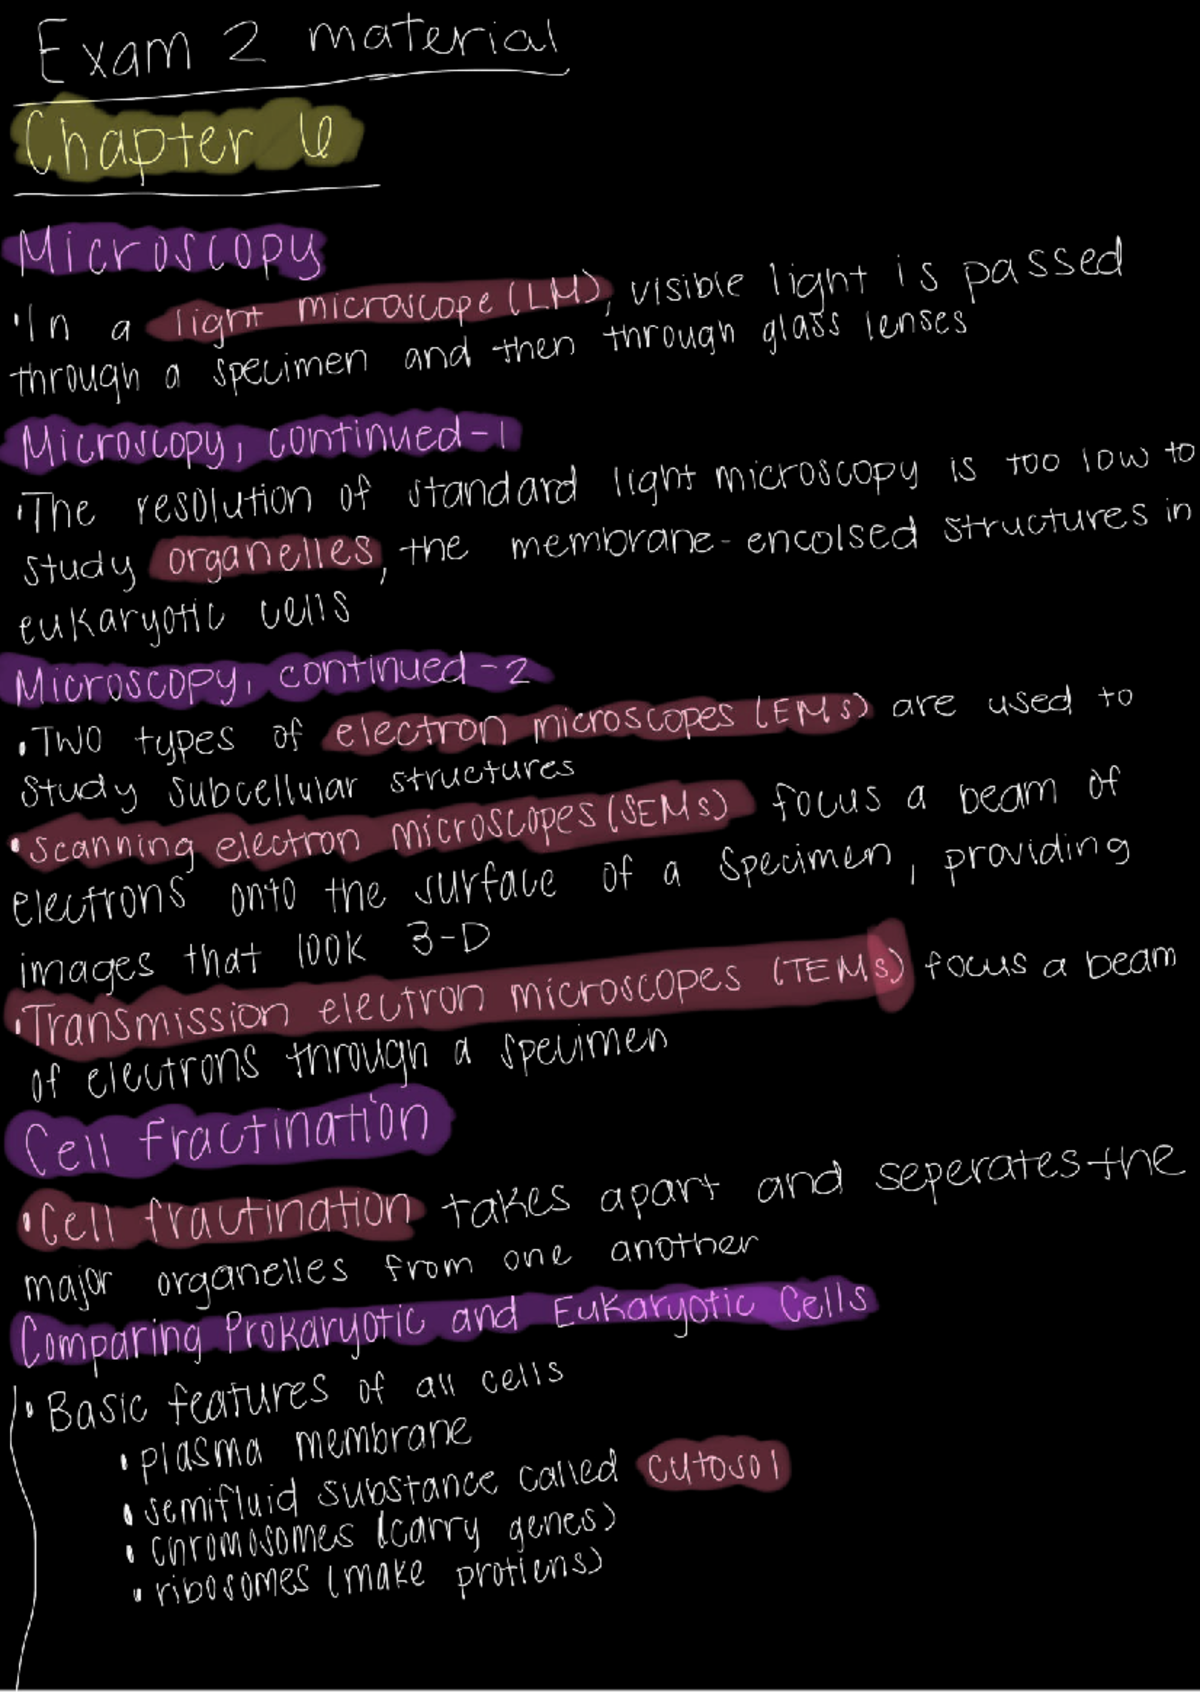 Exam 2 material
Chapter 6
Microscopy
• In a light microscope (LM), visible light is passed
through a specimen and then through glass lenses
Microscopy, continued-1
• The resolution of standard light microscopy is too low to
study organelles, the membrane-encolsed structures in
eukaryotic cells
Microscopy, continued-2
• Two types of electron microscopes (EMs) are used to
study subcellular structures
• Scanning electron microscopes (SEMs) focus a beam of
electrons onto the surface of a specimen, providing
images that look 3-D
• Transmission electron microscopes (TEMs) focus a beam
of electrons through a specimen
Cell fractination
• Cell fractination takes apart and seperates the
major organelles from one another
Comparing Prokaryotic and Eukaryotic Cells
• Basic features of all cells
• plasma membrane
• semifluid substance called cytosol
• chromosomes (carry genes)
• ribosomes (make protiens)